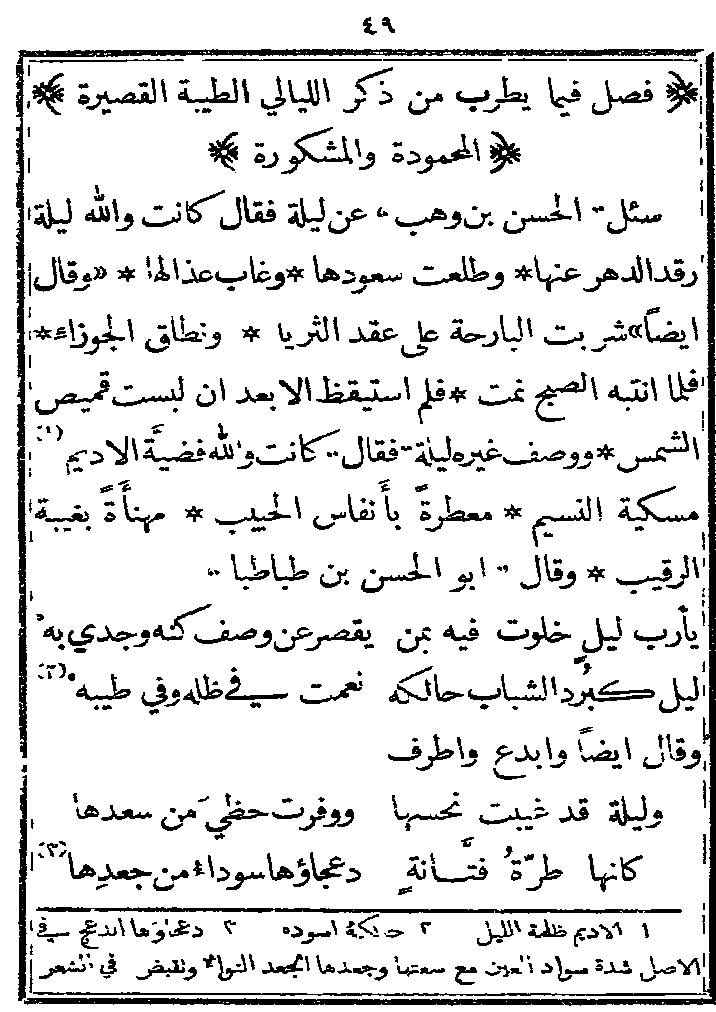 ٤٩
﴿ فصل فيما يطرب من ذكر الليالي الطيبة القصيرة ﴾
﴿ المحمودة والمشكورة ﴾
سئل " الحسن بن وهب " عن ليلة فقال كانت والله ليلة
رقد الدهر عنها * وطلعت سعودها * وغاب عذالها * «وقال
ايضاً» شربت البارحة على عقد الثريا * ونطاق الجوزاء *
فلما انتبه الصبح نمت * فلم استيقظ الا بعد ان لبست قميص
الشمس * ووصف غيره ليلة " فقال " كانت والله فضيَّة الاديم (١)
مسكية النسيم * معطرةً بأنفاس الحبيب * مهنأةً بغيبة
الرقيب * وقال " ابو الحسن بن طباطبا "
يأرب ليل خلوت فيه بمن يقصر عن وصف كنه وجدي به
ليل كبُرد الشباب حالكه نعمت في ظله وفي طيبه (٢)
وقال ايضاً وابدع واطرف
وليلة قد غيبت نحسها ووفرت حظي من سعدها
كانها طرّةُ فتَّانةٍ دعجاؤها سوداء من جعدها (٣)
١ الاديم ظلمة الليل ٢ حالكه اسوده ٣ دعجاؤها الدعج في
الاصل شدة سواد العين مع سعتها وجعدها الجعد التواء وتقبض في الشعر